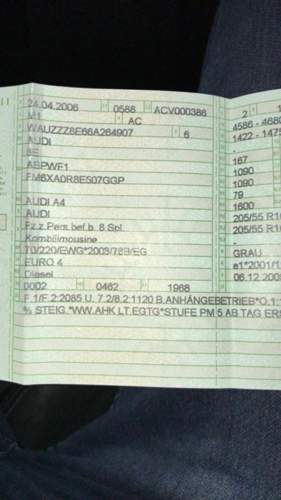 24.04.2006 0588 ACV000386 2
M1 AC 4586 - 4680
WAUZZZ8E66A264907 6 1422 - 1475
AUDI -
8E 167
ABPWF1 1090
FM6XA0R8E507GGP 1090
79
AUDI A4 1600
AUDI 205/55 R16
Fz.z.Pers.bef.b. 8 Spl. 205/55 R16
Kombilimousine -
70/220/EWG*2003/76B/EG GRAU
EURO 4 e1*2001/1
Diesel 06.12.200
0002 0462 1968
F.1/F.2:2085 U. 7.2/8.2:1120 B.ANHÄNGEBETRIEB*O.1:
% STEIG.*WW.AHK LT.EGTG*STUFE PM 5 AB TAG ERS